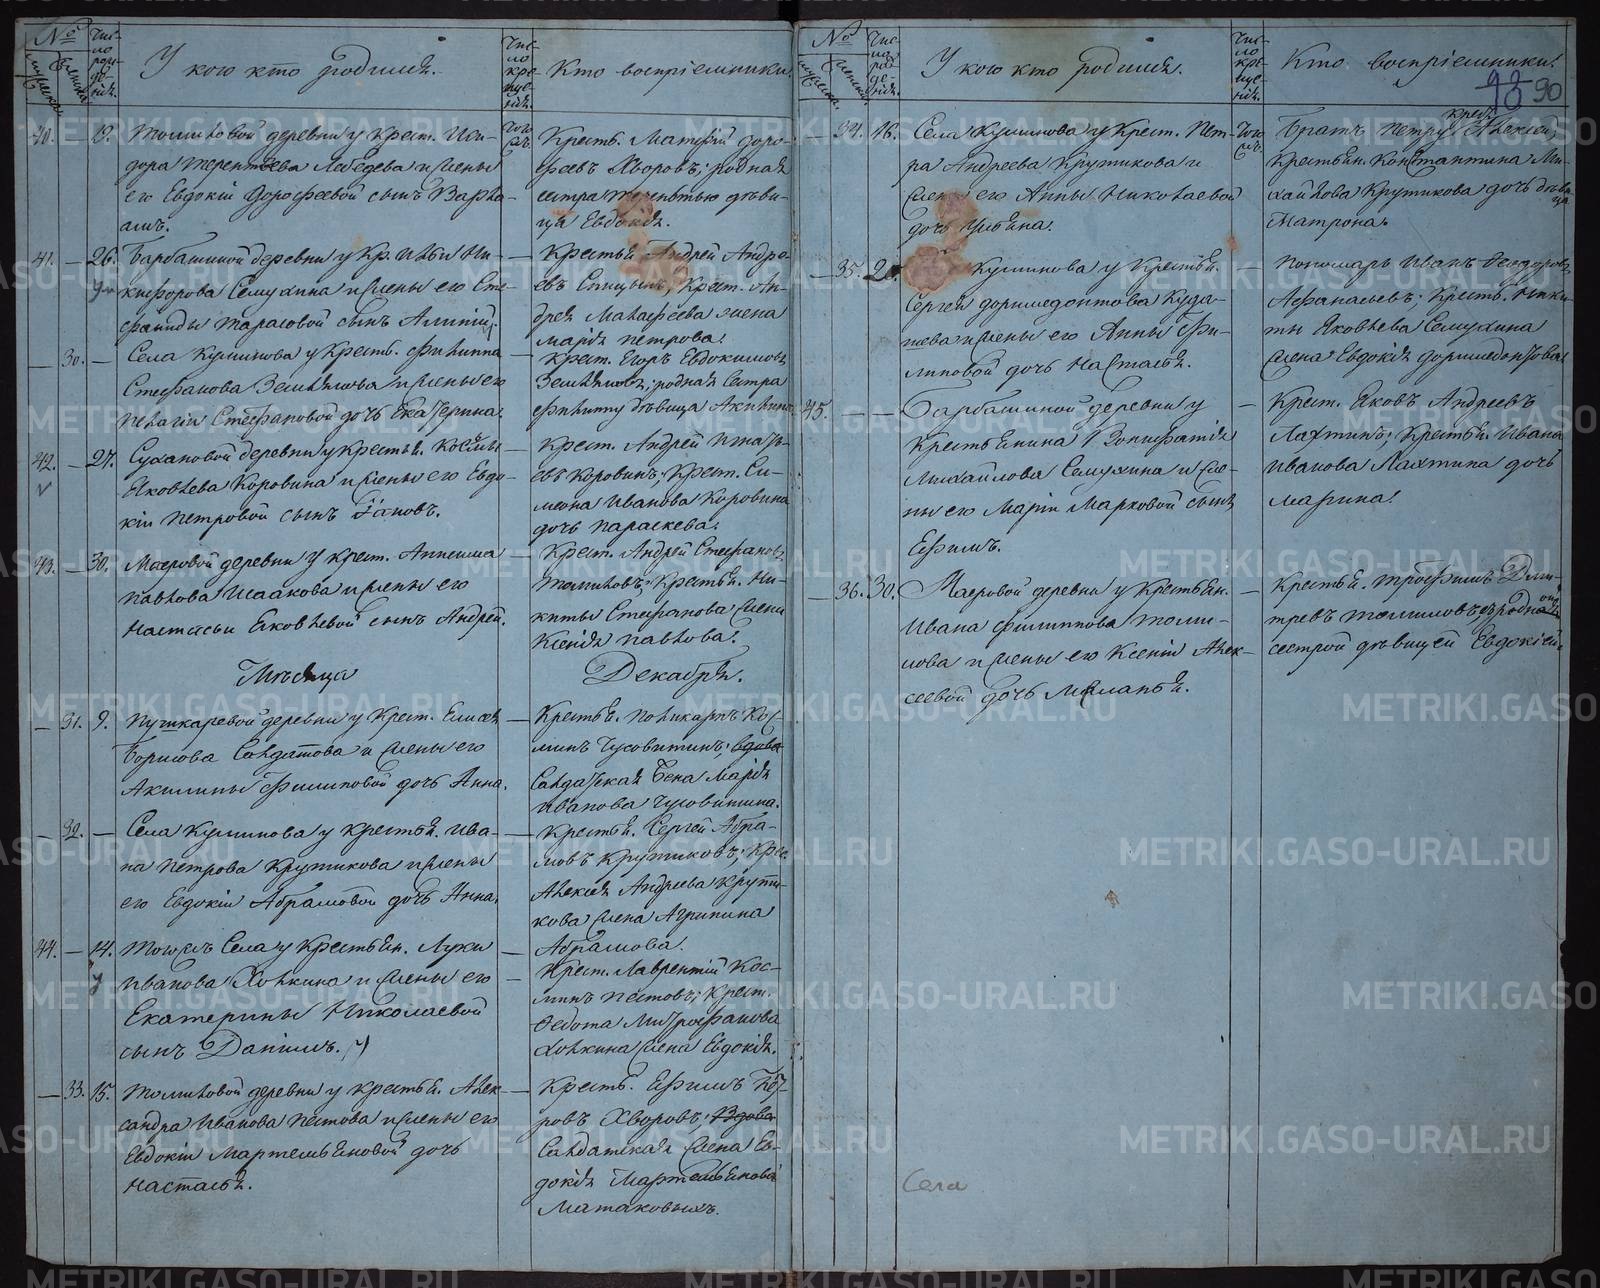 №
мужеска
женска
Чис-
ло
рож-
де-
нія.
У кого кто родился.
Чис-
ло
кре-
ще-
нія.
Кто воспріемники.
40. — 19. Томиловой деревни у крест. Иси-
дора Терентьева Лебедева и жены
его Евдокіи Дорофеевой сынъ Варла-
амъ.
Крестьян. Матфій Доро-
феевъ Хворовъ; родная
сестра Терентью дѣви-
ца Евдокія.
41. — 26. Барбашиной деревни у кр. Ильи Ни-
кифорова Семухина и жены его Сте-
фаниды Тарасовой сынъ Алипій.
— Крестьян. Андрей Андре-
евъ Спицынъ; крест. Ан-
дрея Малафеева жена
Марія Петрова.
— 30. — Села Кушинова у крестьян. Филиппа
Стефанова Земляшова и жены его
Пелагіи Стефановой дочь Екатерина.
— Крест. Егоръ Евдокимовъ
Земляшовъ; родная сестра
Филиппу дѣвица Акилина.
42. — 27. Сухановой деревни у крестьян. Космы
Яковлева Коровина и жены его Евдо-
кіи Петровой сынъ Іаковъ.
Крест. Андрей Игнать-
евъ Коровинъ; крест. Си-
меона Иванова Коровина
дочь Параскева.
43. — 30. Маеровой деревни у крест. Анисима
Павлова Исакова и жены его
Настасьи Яковлевой сынъ Андрей.
— Крест. Андрей Стефановъ
Томиловъ; крестьян. Ни-
киты Стефанова жена
Ксенія Павлова.
Мѣсяца
Декабря.
— 31. 9. Пушкаревой деревни у крест. Елисея
Борисова Солдатова и жены его
Акилины Филиповой дочь Анна.
— Крестьян. Поликарпъ Кос-
минъ Чусовитинъ; вдова
Солдатская жена Марія
Иванова Чусовитина.
— 32. — Села Кушинова у крестьян. Ива-
на Петрова Крутикова и жены
его Евдокіи Абрамовой дочь Анна.
— Крестьян. Сергей Абра-
мовъ Крутиковъ; кре.
Алексія Андреева Крути-
кова жена Агрипина
Абрамова.
44. — 14. Тогожъ Села у крестьян. Луки
Иванова Холкина и жены его
Екатерины Николаевой
сынъ Даніилъ.
— Крест. Лаврентій Кос-
минъ Пестовъ; крест.
Федота Митрофанова
Холкина жена Евдокія.
— 33. 15. Томиловой деревни у крестьян. Алек-
сандра Иванова Пестова и жены его
Евдокіи Мартемьяновой дочь
Настасья.
— Крестьян. Ефимъ Пет-
ровъ Хворовъ; Вдова
Солдатская жена Ев-
докія Мартемьянова
Матаковыхъ.
№
мужеска
женска
Чис-
ло
рож-
де-
нія.
У кого кто родился.
Чис-
ло
кре-
ще-
нія.
Кто воспріемники.
93 90
— 34. 16. Села Кушинова у крест. Пет-
ра Андреева Крутикова и
жены его Анны Николаевой
дочь Іуліяна.
Братъ Петру крест. Алексій;
крестьян. Константина Ми-
хайлова Крутикова дочь дѣви-
ца
Матрона.
— 35. 2 Кушинова у крестьян.
Сергея Доримедонтова Куда-
шева и жены его Анны Фи-
липовой дочь Настасья.
— Пономарь Иванъ Феодоровъ
Афанасьевъ; крестьян. Ники-
ты Яковлева Семухина
жена Евдокія Доримедонтова.
45. — — Барбашиной деревни у
крестьянина Вонифатія
Михайлова Семухина и же-
ны его Маріи Марковой сынъ
Ефимъ.
— Крест. Яковъ Андреевъ
Лахтинъ; крестьян. Ивана
Иванова Лахтина дочь
Марина.
— 36. 30. Маеровой деревни у крестьян.
Ивана Филиппова Томи-
лова и жены его Ксеніи Алек-
сеевой дочь Меланья.
— Крестьян. Трофимъ Дми-
тревъ Томиловъ съ родною
сестрой дѣвицей Евдокіей.
Села
METRIKI.GASO-URAL.RU